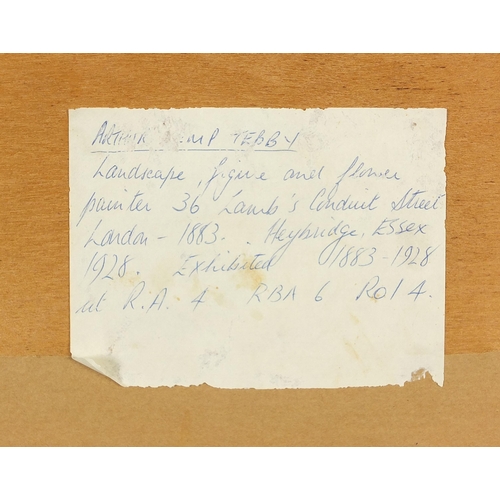 ARTHUR KEMP TEBBY
Landscape, figure and flower
painter 36 Lamb's Conduit Street
London - 1883. . Heybridge, Essex
1928. Exhibited 1883-1928
at R.A. 4 RBA 6 ROI 4.